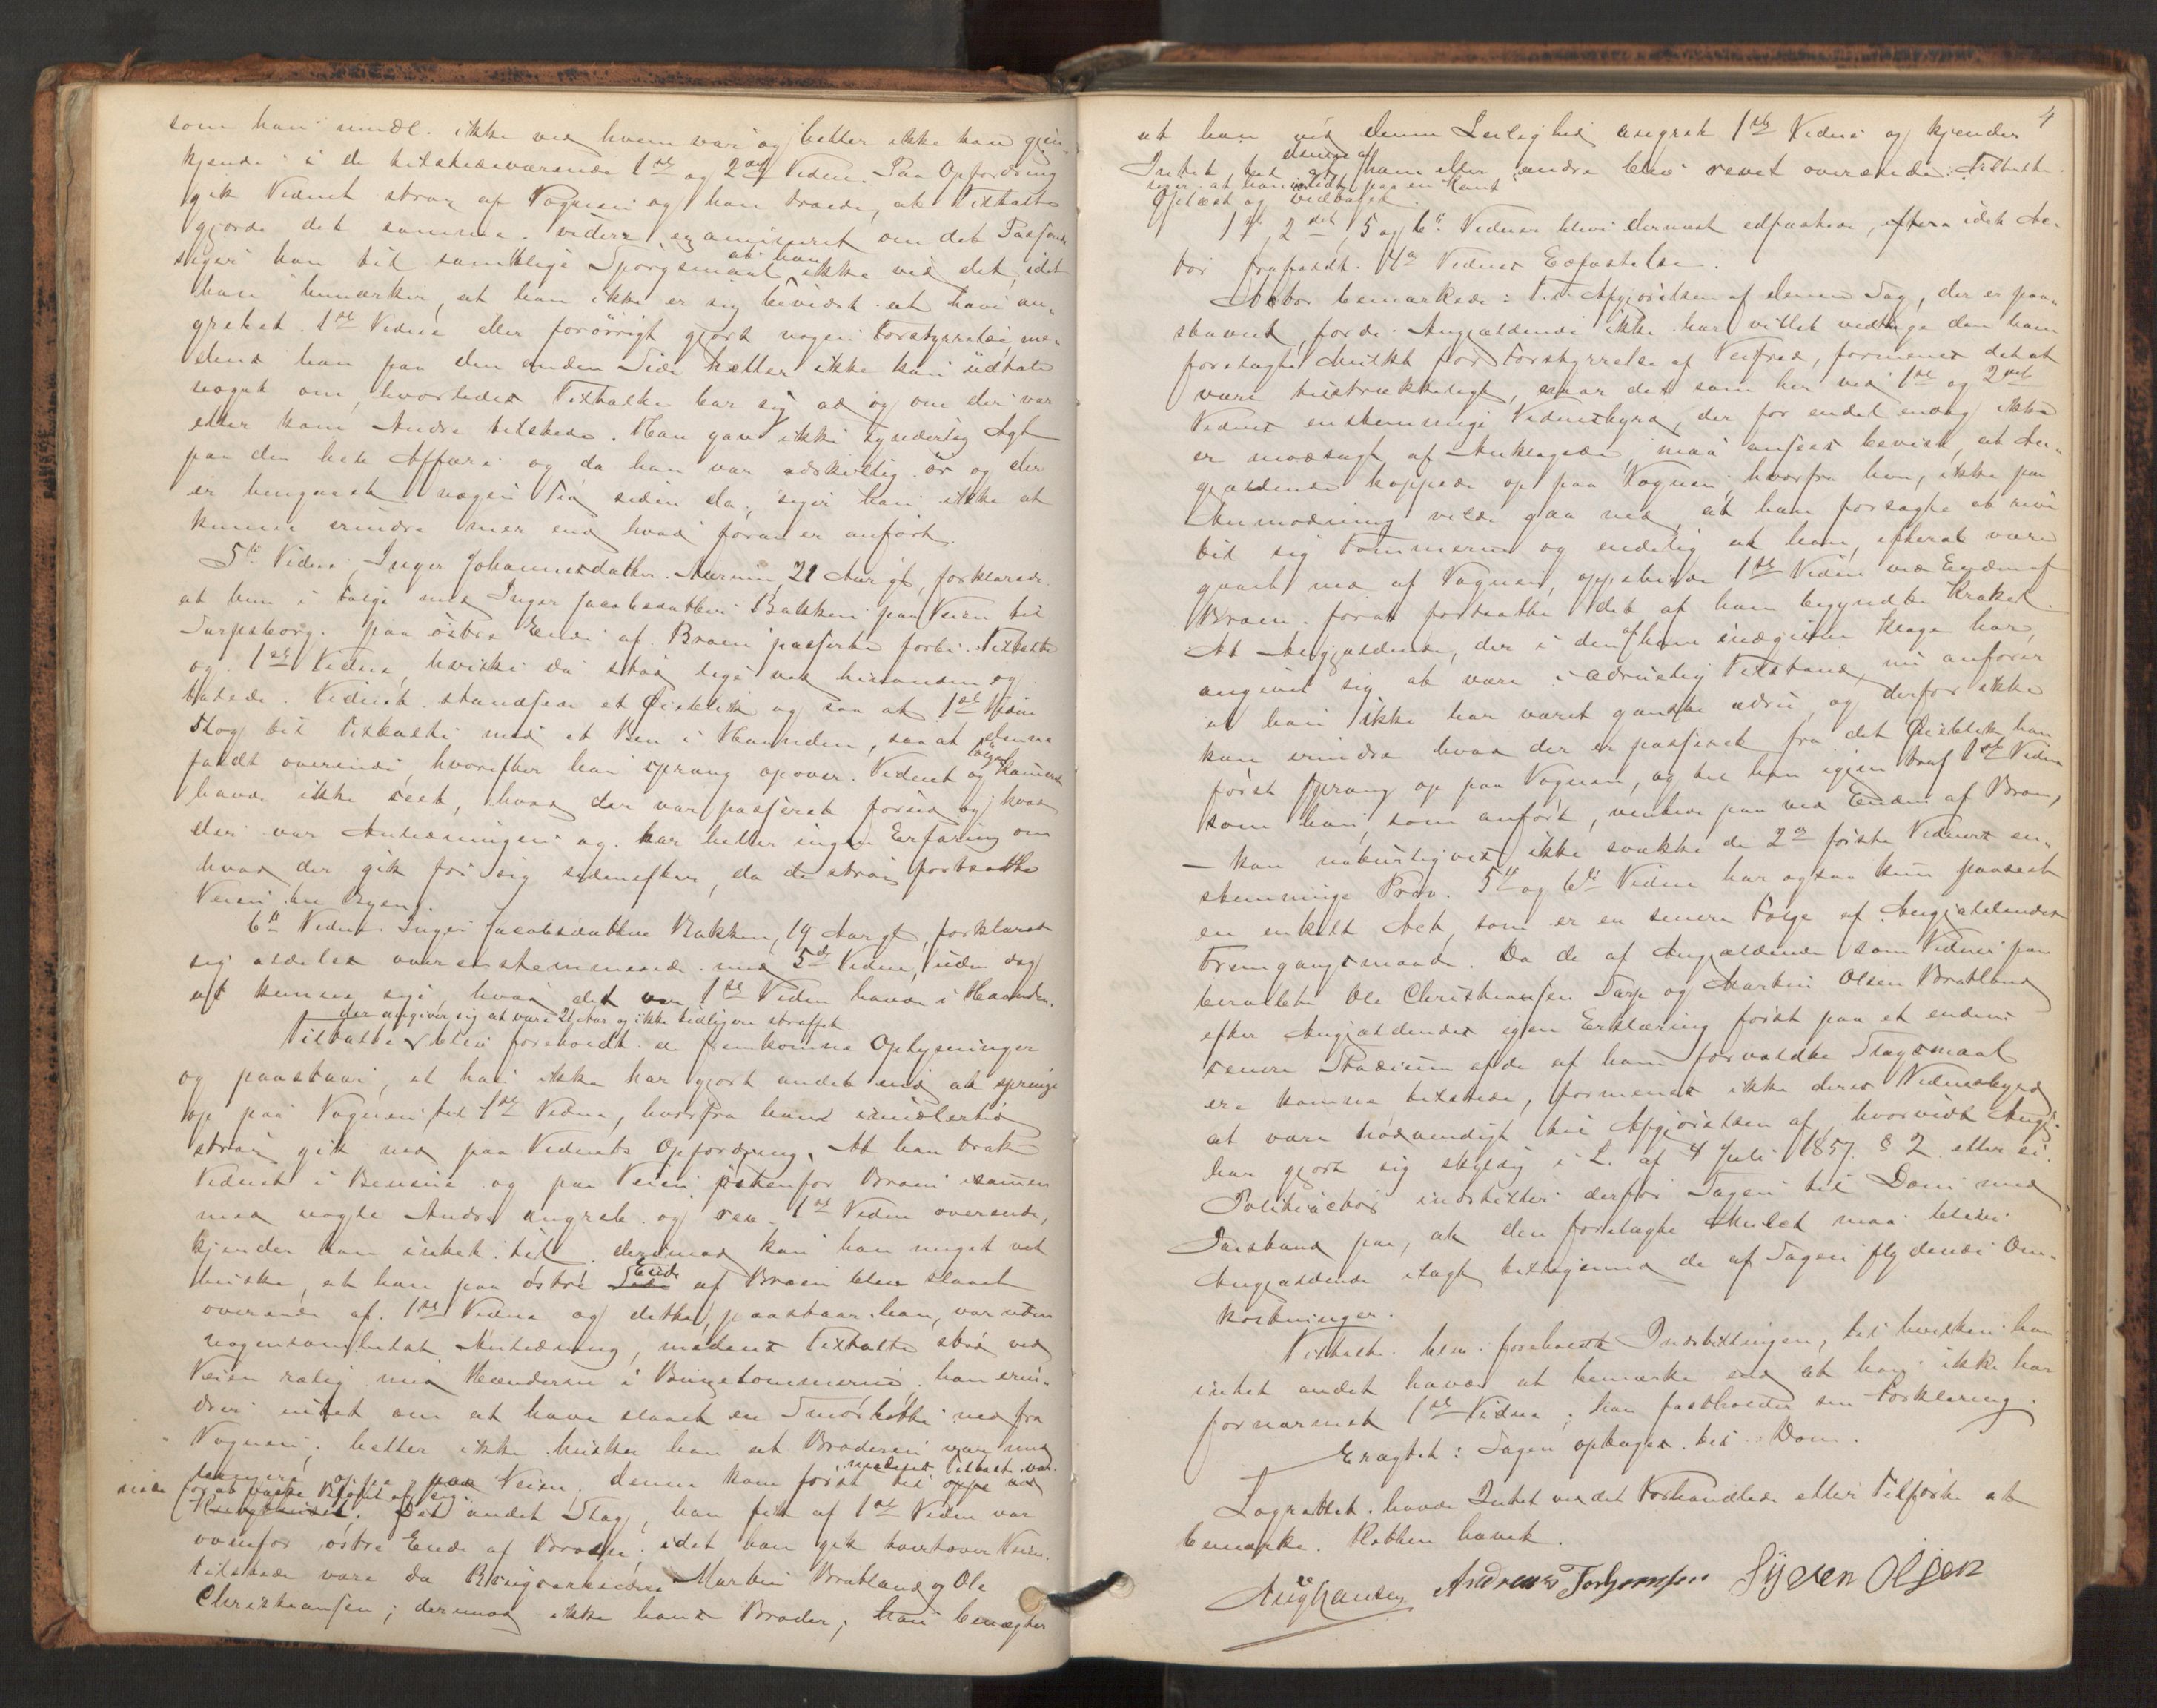 som han nuvæl. ikke ved hvem var og heller ikke kan gjen-
kjende i de tilstedeværende 1ste og 2det Vidne. Paa Opfordring
gik Vidnet strax af Vognen og han troede, at Tiltalte
gjorde det samme. videre examineret om det Passerede
siger han til samtlige Spørgsmaal at han ikke ved det, idet
han bemærker, at han ikke er sig bevidst at have an-
grebet 1ste Vidne eller forøvrigt gjort nogen Forstyrrelse, me-
dens han paa den anden Side heller ikke kan udtale
noget om, hvorledes Tiltalte bar sig ad og om der var
eller kom Andre tilstede. Han gav ikke synderlig Agt
paa den hele Affære og da han var adskillig ør og der
er hengaaet nogen Tid siden da, siger han ikke at
kunne erindre mer end hvad foran er anført.
5te Vidne, Inger Johannesdatter, 21 Aar gl, forklarede
at hun i Følge med Inger Jacobsdatter Bakken paa Veien til
Sarpsborg. paa østre Ende af Broen passerte forbi Tiltalte
og 1ste Vidne, hvilke da stod lige ved hinanden og
talede. Vidnet standsede et Øieblik og saa at 1ste Vidne
slog til Tiltalte med et Ben i Haanden, saa at denne
faldt overende, hvorefter han sprang opover. Vidnet og hendes
havde ikke seet, hvad der var passeret forud og hvad
der var Anledningen og har heller ingen Erfaring om
hvad der gik for sig sidenefter, da de strax fortsatte
Veien til Byen.
6te Vidne Inger Jacobsdatter Bakken, 19 Aar gl, forklaret
sig aldeles overensstemmende med 5te Vidne, uden dog
at kunne sige, hvad det var 1ste Vidne havde i Haanden.
der angiver sig at være 21 Aar og ikke tidligere straffet
Tiltalte blev foreholdt de fremkomne Oplysninger
og paastaar, at han ikke har gjort andet end at springe
op paa Vognen til 1ste Vidne, hvorfra hand imidlertid
strax gik ned paa Vidnets Opfordring. At han trak
Vidnet i Benene og paa Veien østenfor Broen sammen
med nogle Andre angreb og rev 1ste Vidne overende,
kjender han intet til. derimod kan han meget vel
huske, at han paa østre Ende af Broen blev slaaet
overende af 1ste Vidne og dette, paastaar han, var uden
nogensomhelst Anledning, medens Tiltalte stod ved
Veien rolig med Hænderne i Buxelommerne. han erin-
drer intet om at have slaaet en Smørbøtte ned fra
Vognen; heller ikke husker han at Broderen var med
oppe paa Veien. denne kom først til medens Tiltalte var
nede for at vaske Blodet af sig. Det andet Slag, han fik af 1ste Vidne var
ovenfor østre Ende af Broen, idet han gik tvertover Veien.
tilstede vare da Martin Bratland og Ole
Christiansen; derimod ikke hans Broder; han benægter
4
at han ved denne Leilighed angreb 1ste Vidne og kjender
Intet til at ham eller andre blev revet overende. Tiltalte
siger at han var lidt paa en Kant
Oplæst og vedtaget.
1ste, 2det, 5 og 6te Vidner blev dernæst edfæstede, efterat Ac-
tor frafaldt 4de Vidnes Edfæstelse.
Actor bemærkede: Til Afgjørelsen af denne Sag, der er paa-
stævnet, fordi Angjældende ikke har villet vedtage den ham
forelagte Mulkt for Forstyrrelse af Veifred, formenes det at
være tilstrækkeligt, naar det som her ved 1ste og 2det
Vidnes enstemmige Vidnesbyrd, der for endel endog ikke
er modsagt af Anklagede, maa ansees bevist, at An-
gjældende hoppede op paa Vognen, hvorfra han, ikke paa
Anmodning vilde gaa ned, at han forsøgte at rive
til sig Tømmerne og endelig at han, efterat være
gaaet ned af Vognen, oppebiede 1ste Vidne ved Enden af
Broen for at fortsætte det af ham begyndte Krakel.
At Angjældende, der i den af ham indgivne Klage har
angivet sig at være i ædruelig Tilstand, nu anfører
at han ikke har været ganske ædru og derfor ikke
kan erindre hvad der er passeret fra det Øieblik han
først sprang op paa Vognen, og til han igjen traf 1ste Vidne
som han, som anført, ventede paa ved Enden af Broen,
– kan naturligvis ikke svække de 2de første Vidners en-
stemmige Prov. 5te og 6te Vidne har ogsaa kun paaseet
en enkelt Act, som er en senere Følge af Angjældendes
Fremgangsmaade. Da de af Angjældende som Vidner paa-
beraabte Ole Christiansen Sarp og Martin Olsen Bratland
efter Angjældendes egen Erklæring først paa et endnu
senere Stadium af de af ham forvoldte Slagsmaal
ere komne tilstede, formenes ikke deres Vidnesbyrd
at være nødvendigt til Afgjørelsen af, hvorvidt Angj.
har gjort sig skyldig i L. af 4 Juli 1857 § 2 eller ei.
Politiactor indstiller derfor Sagen til Dom med
Paastand paa, at den forelagte Mulct maa blive
Angjældende ilagt tilligemed de af Sagen flydende Om-
kostninger.
Tiltalte blev foreholdt Indstillingen, til hvilken han
intet andet havde at bemærke end at han ikke har
fornærmet 1ste Vidne; han fastholder sin Forklaring.
Eragtet: Sagen optages til Dom.
Lagrettet havde Intet ved det Forhandlede eller Tilførte at
bemærke. Retten hævet.
Aug Hansen Andreas Torgersen Syver Olsen